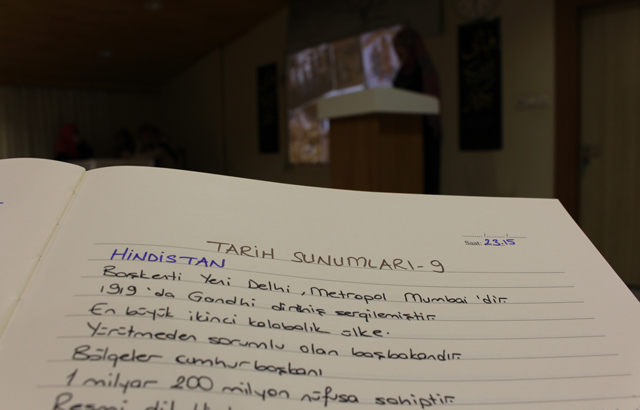 Saat: 23.15
TARİH SUNUMLARI-9
HİNDİSTAN
Başkenti Yeni Delhi, Metropol Mumbai'dir
1919'da Gandhi diriliş sergilemiştir
En büyük ikinci kalabalık ülke.
Yürütmeden sorumlu olan başbakandır
Bölgeler cumhurbaşkanı
1 milyar 200 milyon nüfusa sahiptir
Resmi dil